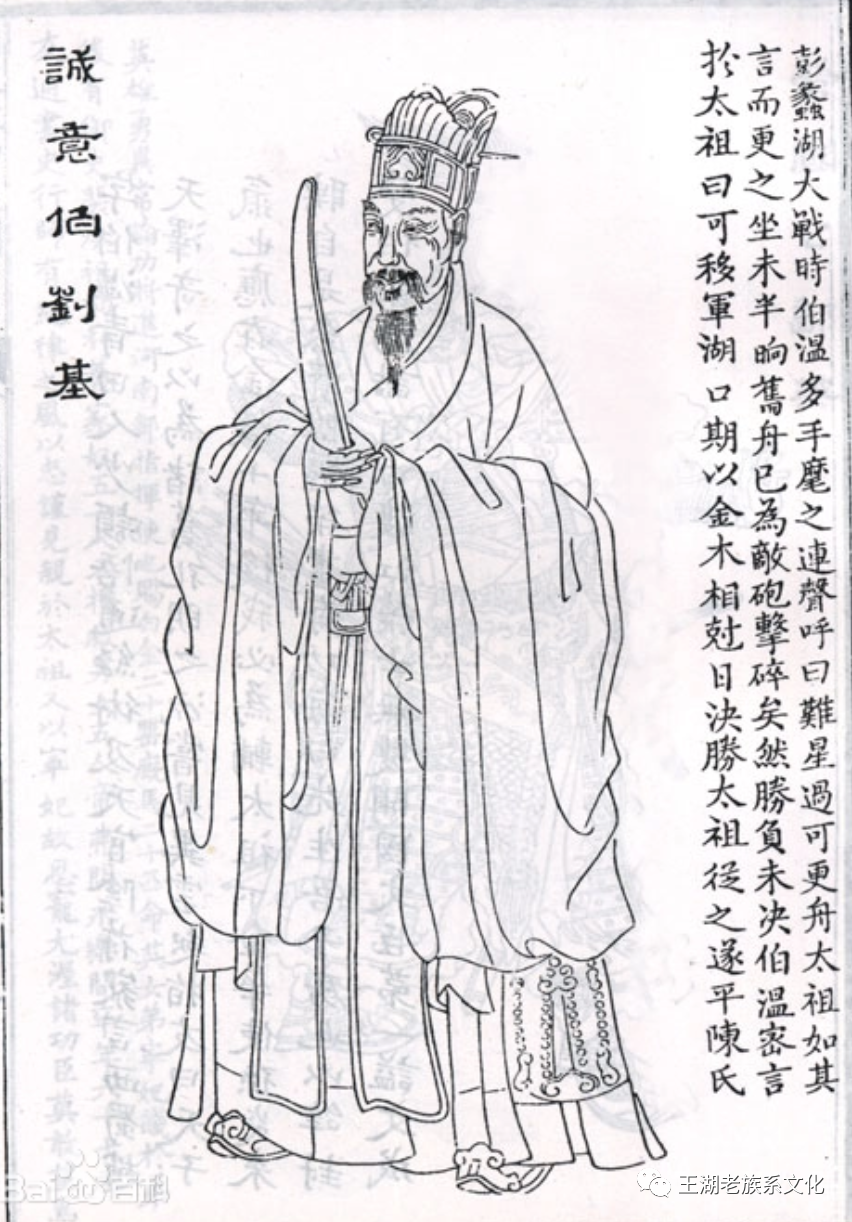 彭蠡湖大戰時伯溫多手麾之連聲呼曰難星過可更舟太祖如其
言而更之坐未半晌舊舟已為敵砲擊碎矣然勝負未决伯溫密言
扵太祖曰可移軍湖口期以金木相尅日決勝太祖從之遂平陳氏
誠意伯劉基
Bai 百科
王湖老族系文化